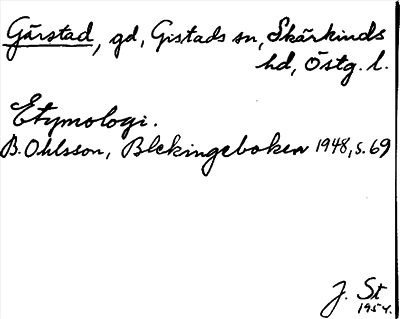 Gärstad, gd, Gistads sn, Skärkinds
hd, Östg. l.
Etymologi.
B. Ohlsson, Blekingeboken 1948, s. 69
J. St
1954.